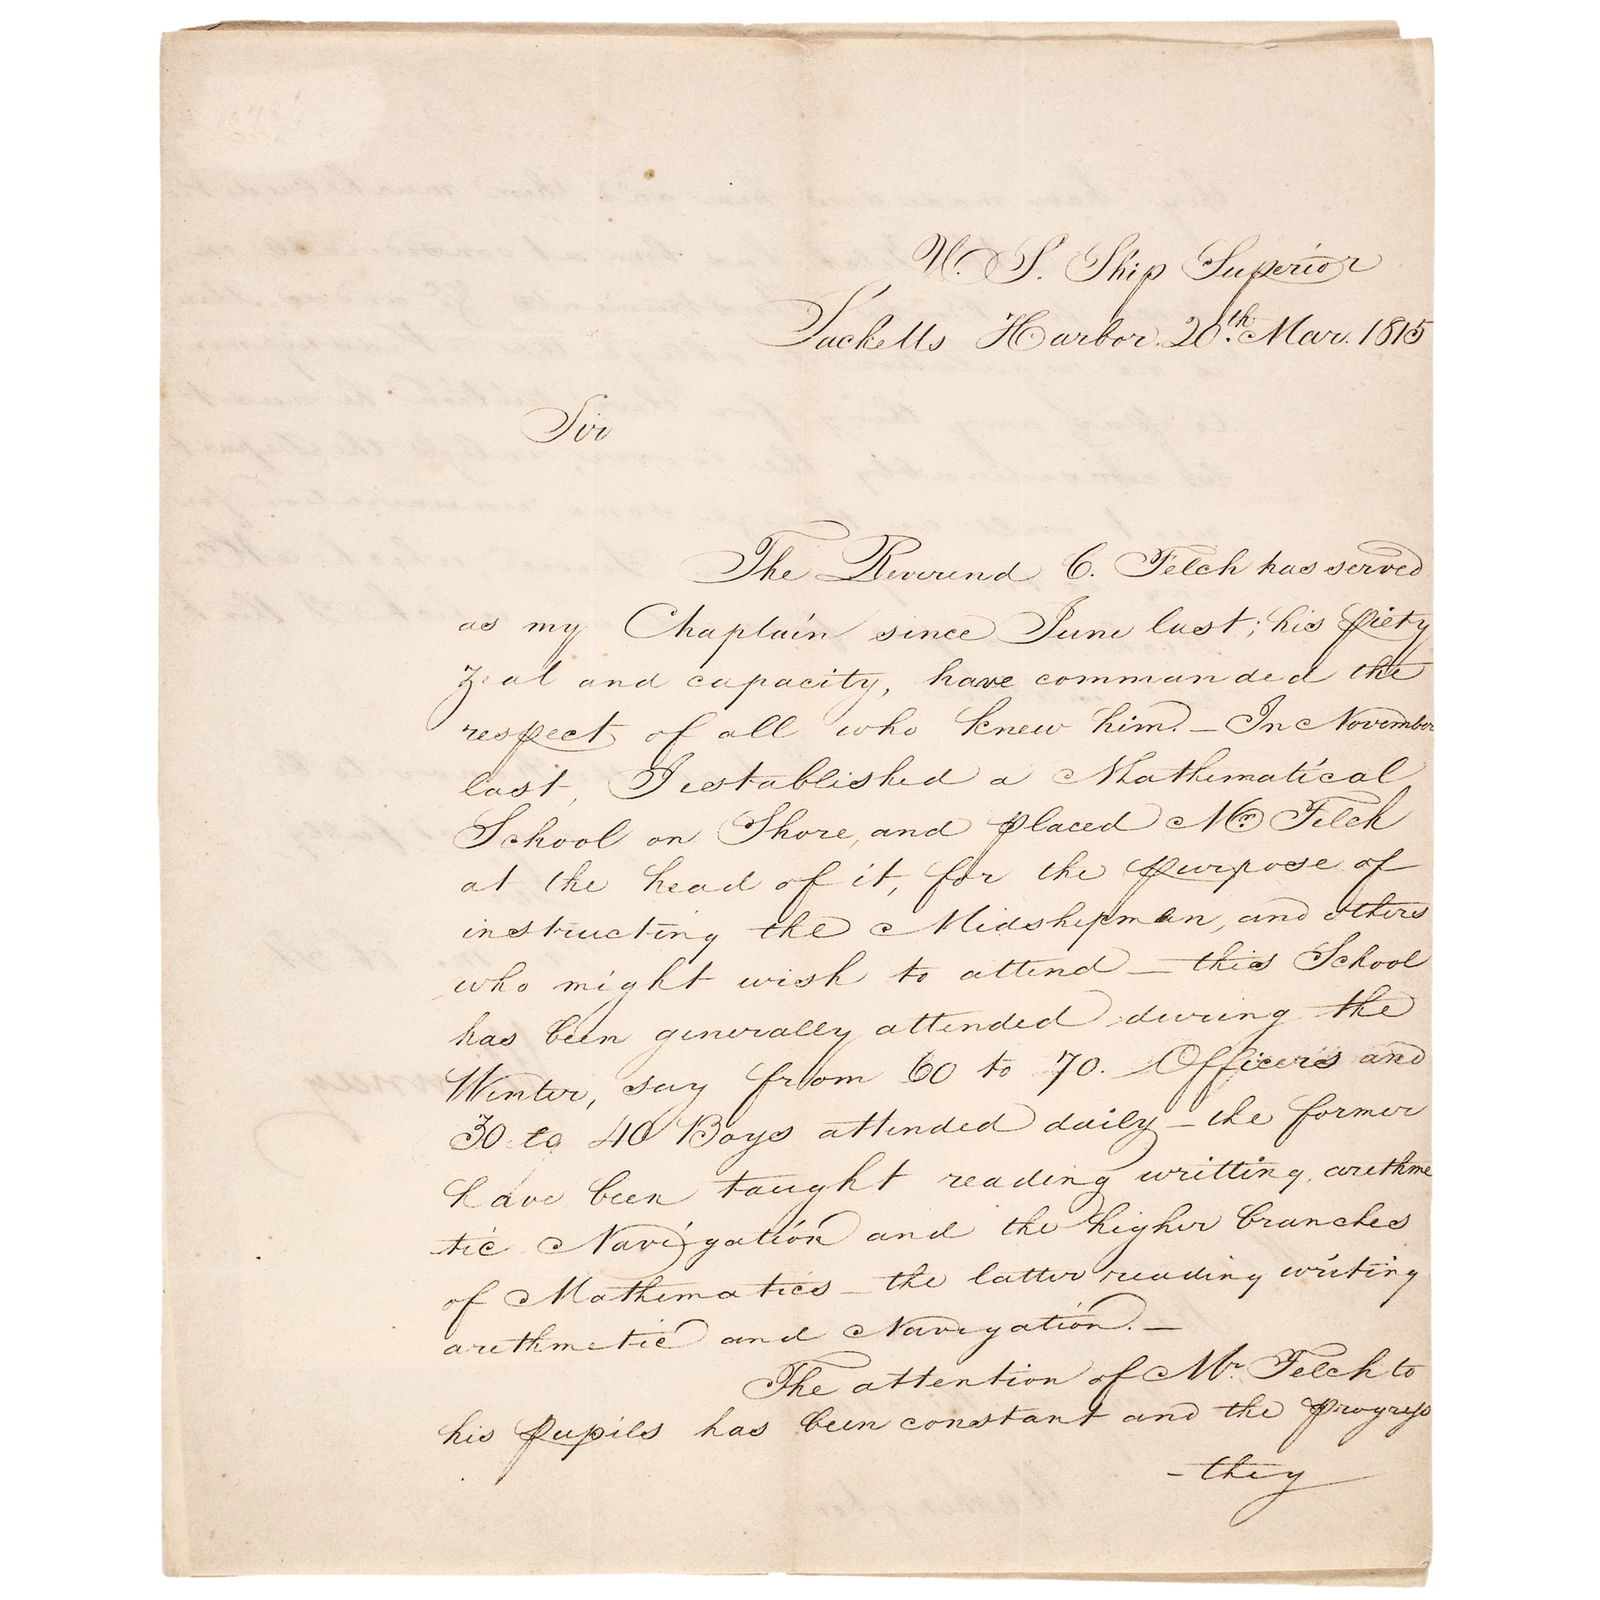 U. S. Ship Superior
Sacketts Harbor. 20th. Mar. 1815
Sir
The Reverend C. Felch has served
as my Chaplain since June last; his piety
zeal and capacity, have commanded the
respect of all who knew him. — In November
last, I established a Mathematical
School on Shore, and placed Mr. Felch
at the head of it, for the purpose of
instructing the Midshipmen, and others
who might wish to attend — this School
has been generally attended during the
Winter, say from 60 to 70. Officers and
30 to 40 Boys attended daily — the former
have been taught reading writting, arethme
tic Navigation and the higher branches
of Mathematics — the latter reading writing
arethmetic and Navigation. —
The attention of Mr. Felch to
his pupils has been constant and the progress
— they